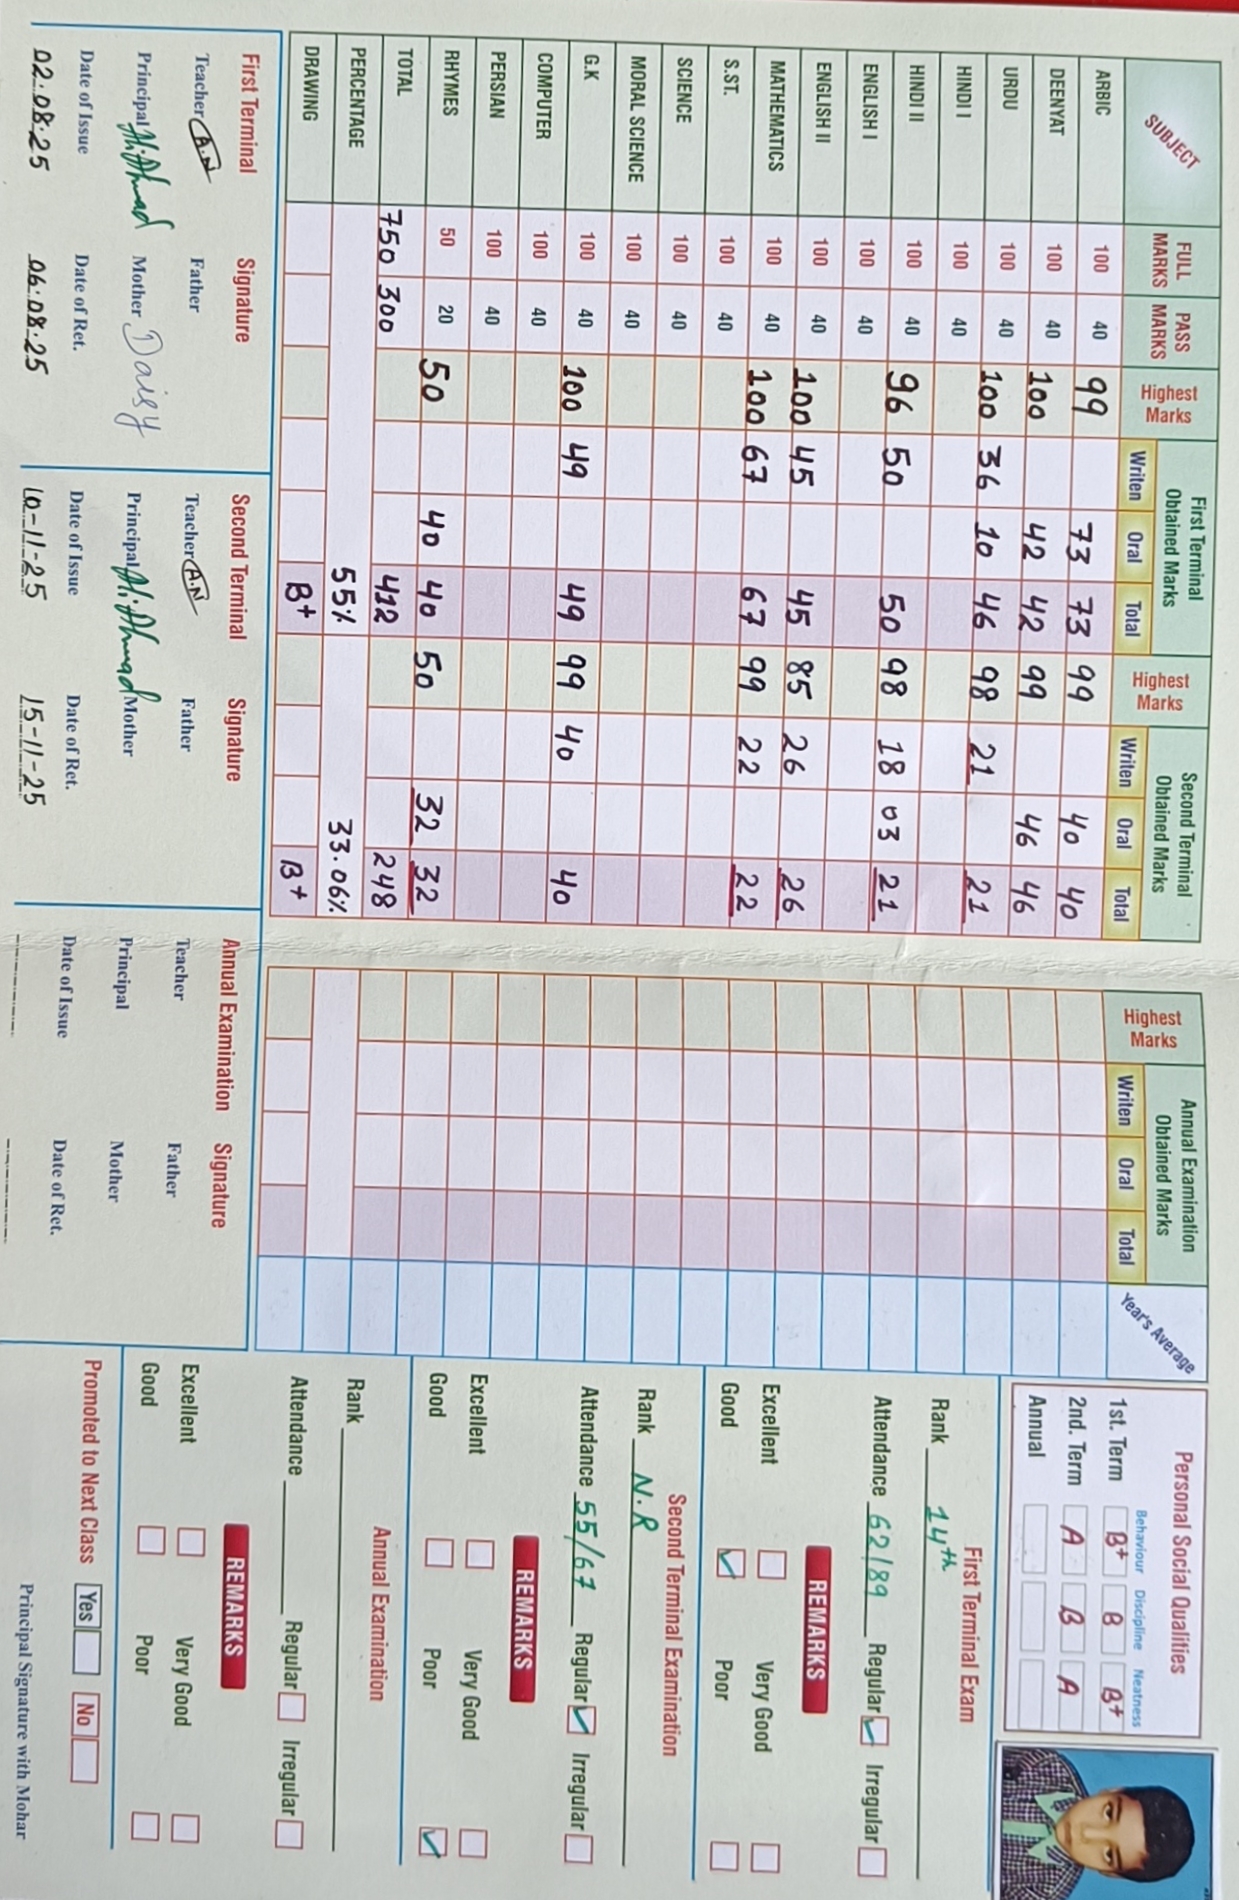 SUBJECT FULL MARKS PASS MARKS Highest Marks First Terminal Obtained Marks Writen Oral Total Highest Marks Second Terminal Obtained Marks Writen Oral Total Highest Marks Annual Examination Obtained Marks Writen Oral Total Year's Average
ARBIC 100 40 99 73 73 99 40 40
DEENYAT 100 40 100 42 42 99 46 46
URDU 100 40 100 36 10 46 98 21 21
HINDI I 100 40
HINDI II 100 40 96 50 50 98 18 03 21
ENGLISH I 100 40
ENGLISH II 100 40 100 45 45 85 26 26
MATHEMATICS 100 40 100 67 67 99 22 22
S.ST. 100 40
SCIENCE 100 40
MORAL SCIENCE 100 40
G.K 100 40 100 49 49 99 40 40
COMPUTER 100 40
PERSIAN 100 40
RHYMES 50 20 50 40 40 50 32 32
TOTAL 750 300 412 248
PERCENTAGE 55% 33.06%
DRAWING B+ B+
First Terminal Signature
Teacher A.N Father
Principal H.Ahmad Mother Daisy
Date of Issue Date of Ret.
02.08.25 06.08.25
Second Terminal Signature
Teacher A.N Father
Principal H.Ahmad Mother
Date of Issue Date of Ret.
10-11-25 15-11-25
Annual Examination Signature
Teacher Father
Principal Mother
Date of Issue Date of Ret.
Personal Social Qualities
Behaviour Discipline Neatness
1st. Term B+ B B+
2nd. Term A B A
Annual
First Terminal Exam
Rank 14th
Attendance 62/89 Regular Irregular
REMARKS
Excellent Very Good
Good Poor
Second Terminal Examination
Rank N.R
Attendance 55/67 Regular Irregular
REMARKS
Excellent Very Good
Good Poor
Annual Examination
Rank
Attendance Regular Irregular
REMARKS
Excellent Very Good
Good Poor
Promoted to Next Class Yes No
Principal Signature with Mohar